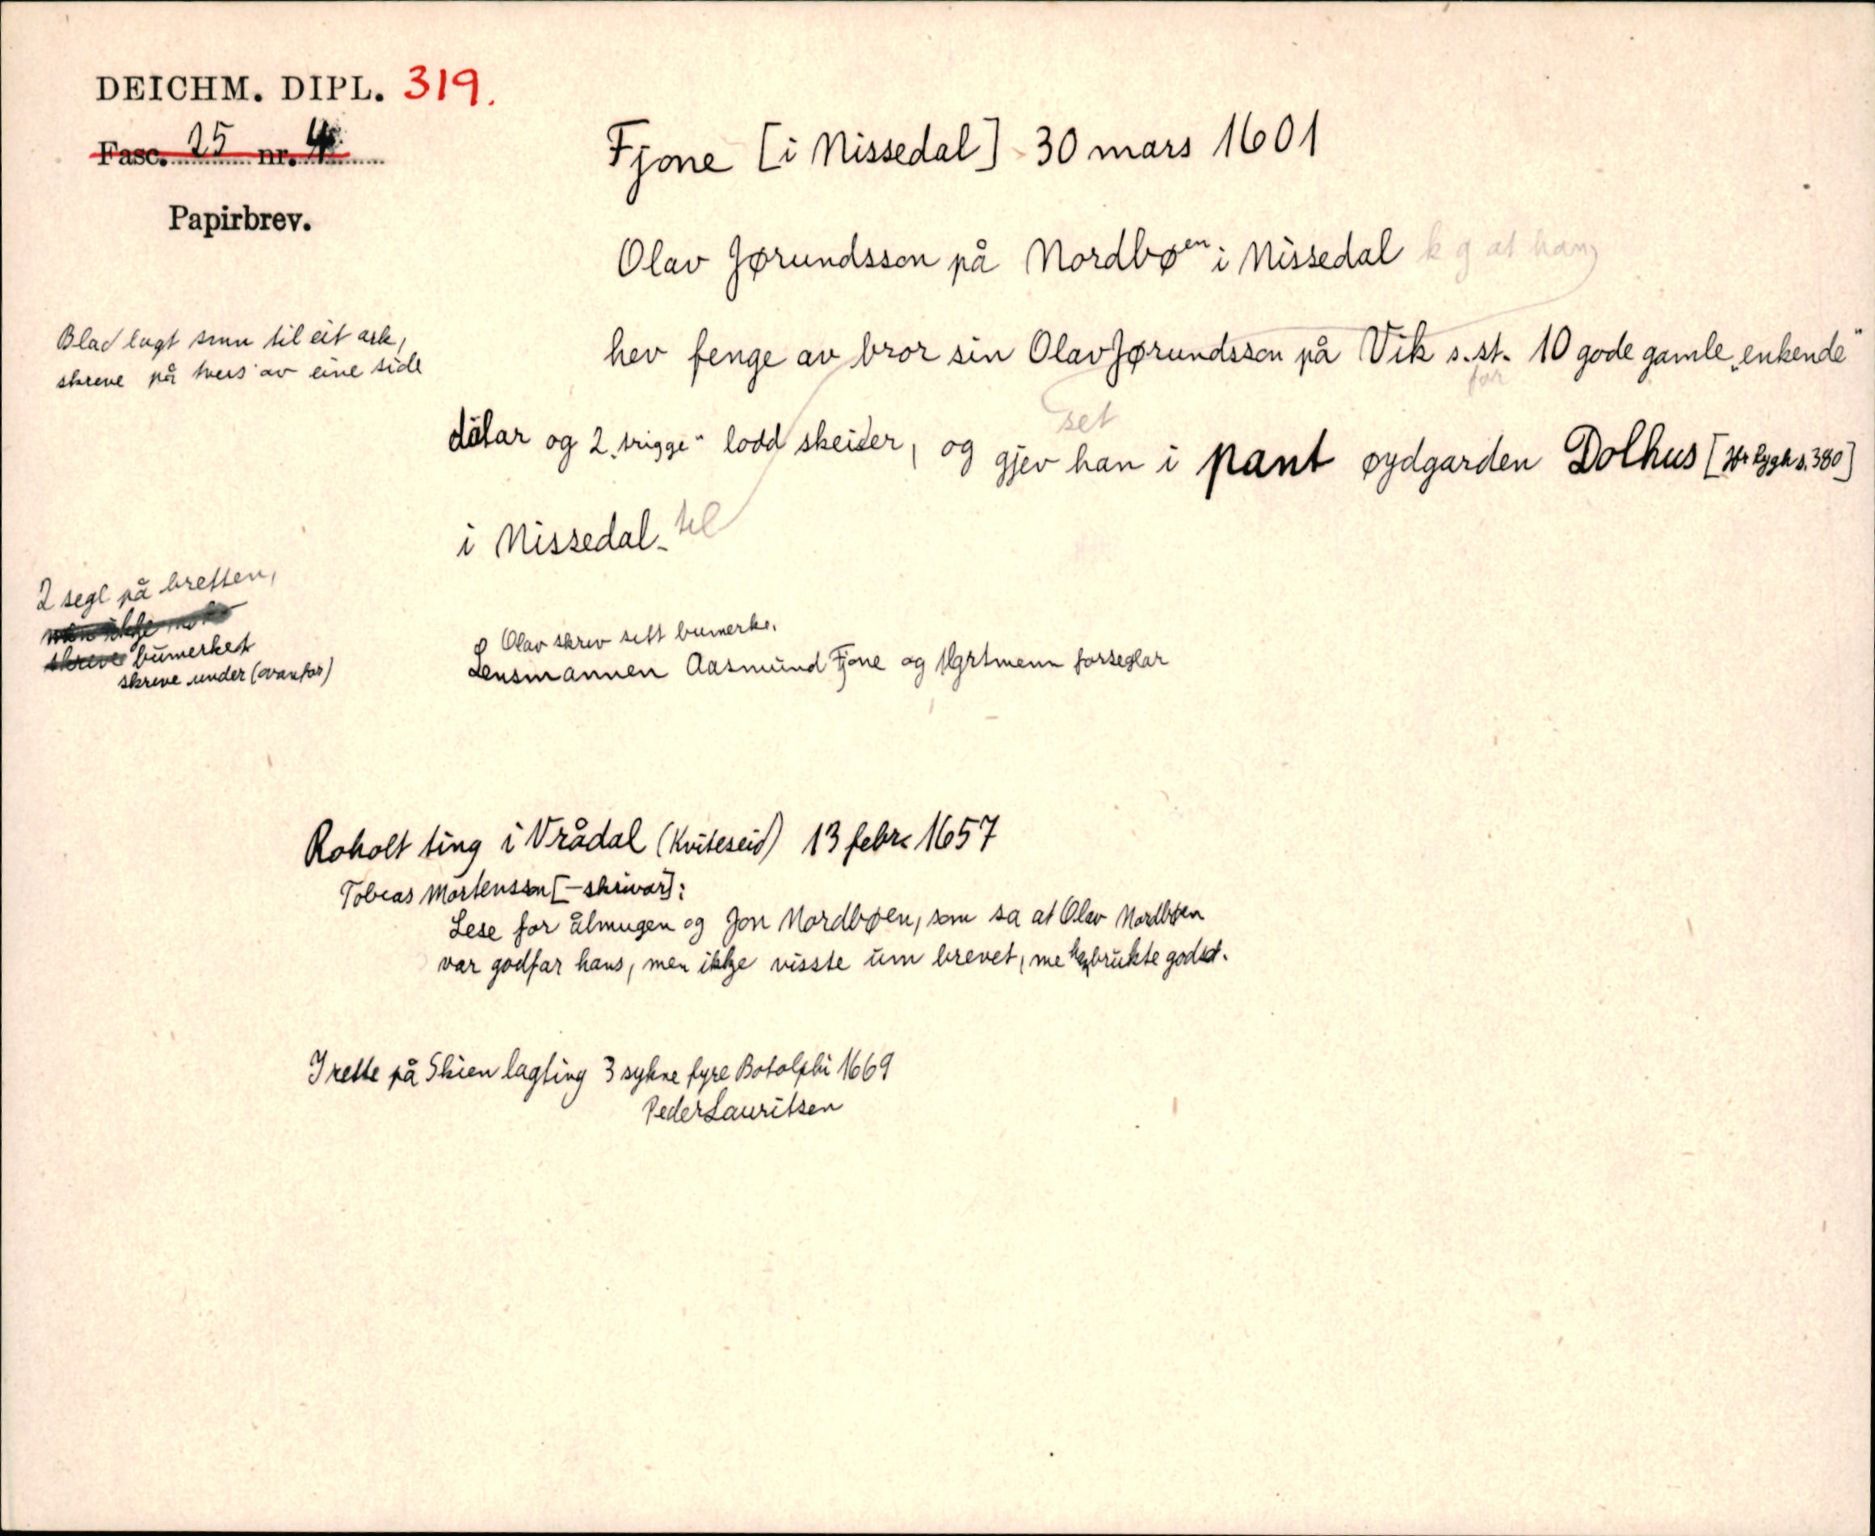 DEICHM. DIPL. 319.
Fasc. 25 nr. 4
Papirbrev.
Fjone [i Nissedal] 30 mars 1601
Olav Jørundsson på Nordbøen i Nissedal k g at han
Blad lagt smn til eit ark,
skreve på tvers av eine side
hev fenge av bror sin Olav Jørundsson på Vik s.st. 10 gode gamle „enkende"
for
set
dalar og 2 „trigge" lodd skeider, og gjev han i pant øydgarden Dolhus [Rygh s. 380]
i Nissedal - til
2 segl på bretten,
skreve bumerket
skreve under (ovanfor)
Olav skrev sitt bumerke.
Lensmannen Aasmund Fjone og lgrtmenn forseglar
Roholt ting i Vrådal (Kviteseid) 13 febr. 1657
Tobias Mortensson [- skrivar]:
Lese for ålmugen og Jon Nordbøen, som sa at Olav Nordbøen
var godfar hans, men ikkje visste um brevet, me brukte godset.
I rette på Skien lagting 3 sykne fyre Botolphi 1669
Peder Lauritsen